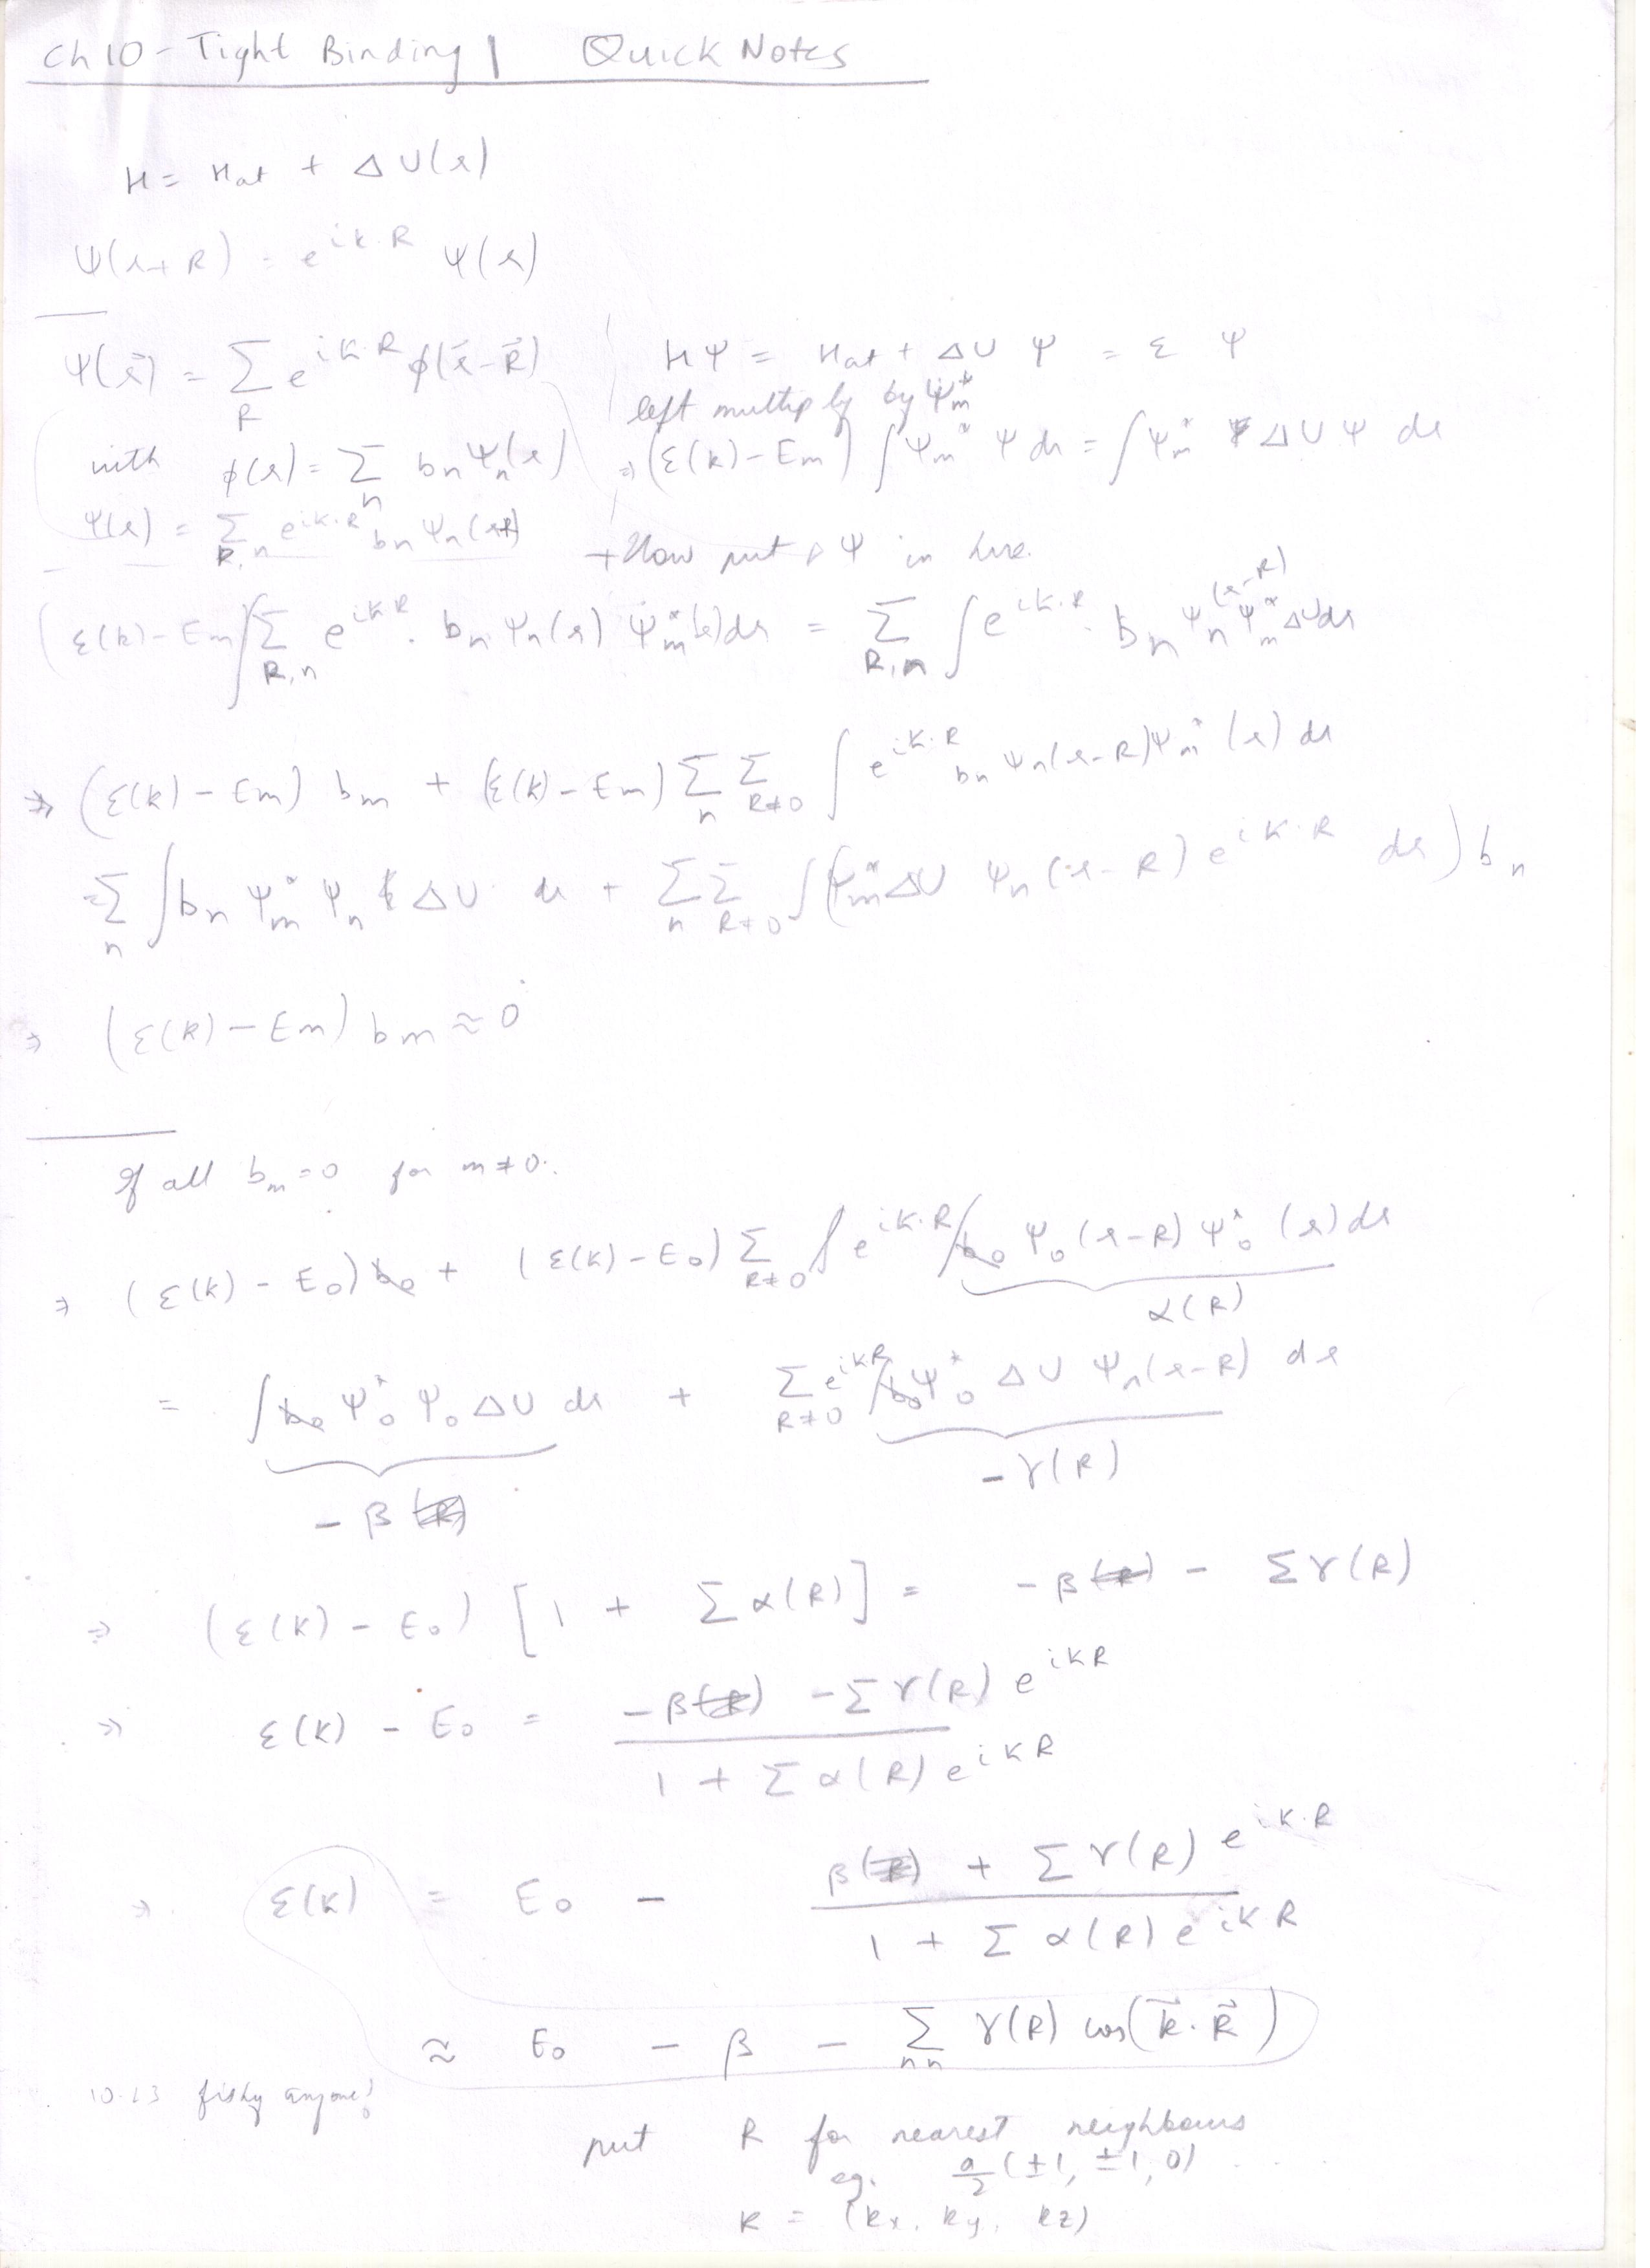 Ch 10 - Tight Binding | Quick Notes
H = Hat + ΔU(r)
Ψ(r+R) = e^{ik·R} Ψ(r)
Ψ(r⃗) = Σ_R e^{ik·R} ϕ(r⃗-R⃗)
with ϕ(r) = Σ_n bn Ψn(r)
Ψ(r) = Σ_{R,n} e^{ik·R} bn Ψn(r-R)
HΨ = Hat + ΔU Ψ = ε Ψ
left multiply by Ψm*
⇒ (ε(k) - Em) ∫ Ψm* Ψ dr = ∫ Ψm* ΔU Ψ dr
→ Now put Ψ in here.
(ε(k) - Em) ∫ Σ_{R,n} e^{ik·R}. bn Ψn(r) Ψm*(r) dr = Σ_{R,n} ∫ e^{ik·R}. bn Ψn(r-R) Ψm* ΔU dr
⇒ (ε(k) - Em) bm + (ε(k) - Em) Σ_n Σ_{R≠0} ∫ e^{ik·R} bn Ψn(r-R) Ψm*(r) dr
= Σ_n ∫ bn Ψm* Ψn ΔU dr + Σ_n Σ_{R≠0} ∫ (Ψm* ΔU Ψn(r-R) e^{ik·R} dr) bn
⇒ (ε(k) - Em) bm ≈ 0
If all bm = 0 for m≠0.
⇒ (ε(k) - E0) b0 + (ε(k) - E0) Σ_{R≠0} ∫ e^{ik·R} ∫ b0 Ψ0(r-R) Ψ0*(r) dr
α(R)
= ∫ b0 Ψ0* Ψ0 ΔU dr + Σ_{R≠0} e^{ikR} ∫ b0 Ψ0* ΔU Ψn(r-R) dr
-β (R)
-γ(R)
⇒ (ε(k) - E0) [1 + Σ α(R)] = -β(R) - Σ γ(R)
⇒ ε(k) - E0 = (-β(R) - Σ γ(R) e^{ikR}) / (1 + Σ α(R) e^{ikR})
⇒ ε(k) = E0 - (β(R) + Σ γ(R) e^{ik·R}) / (1 + Σ α(R) e^{ikR})
≈ E0 - β - Σ_{nn} γ(R) cos(k⃗·R⃗)
10.13 fishy anyone?
put R for nearest neighbours
eg. a/2 (±1, ±1, 0) ....
K = (kx, ky, kz)